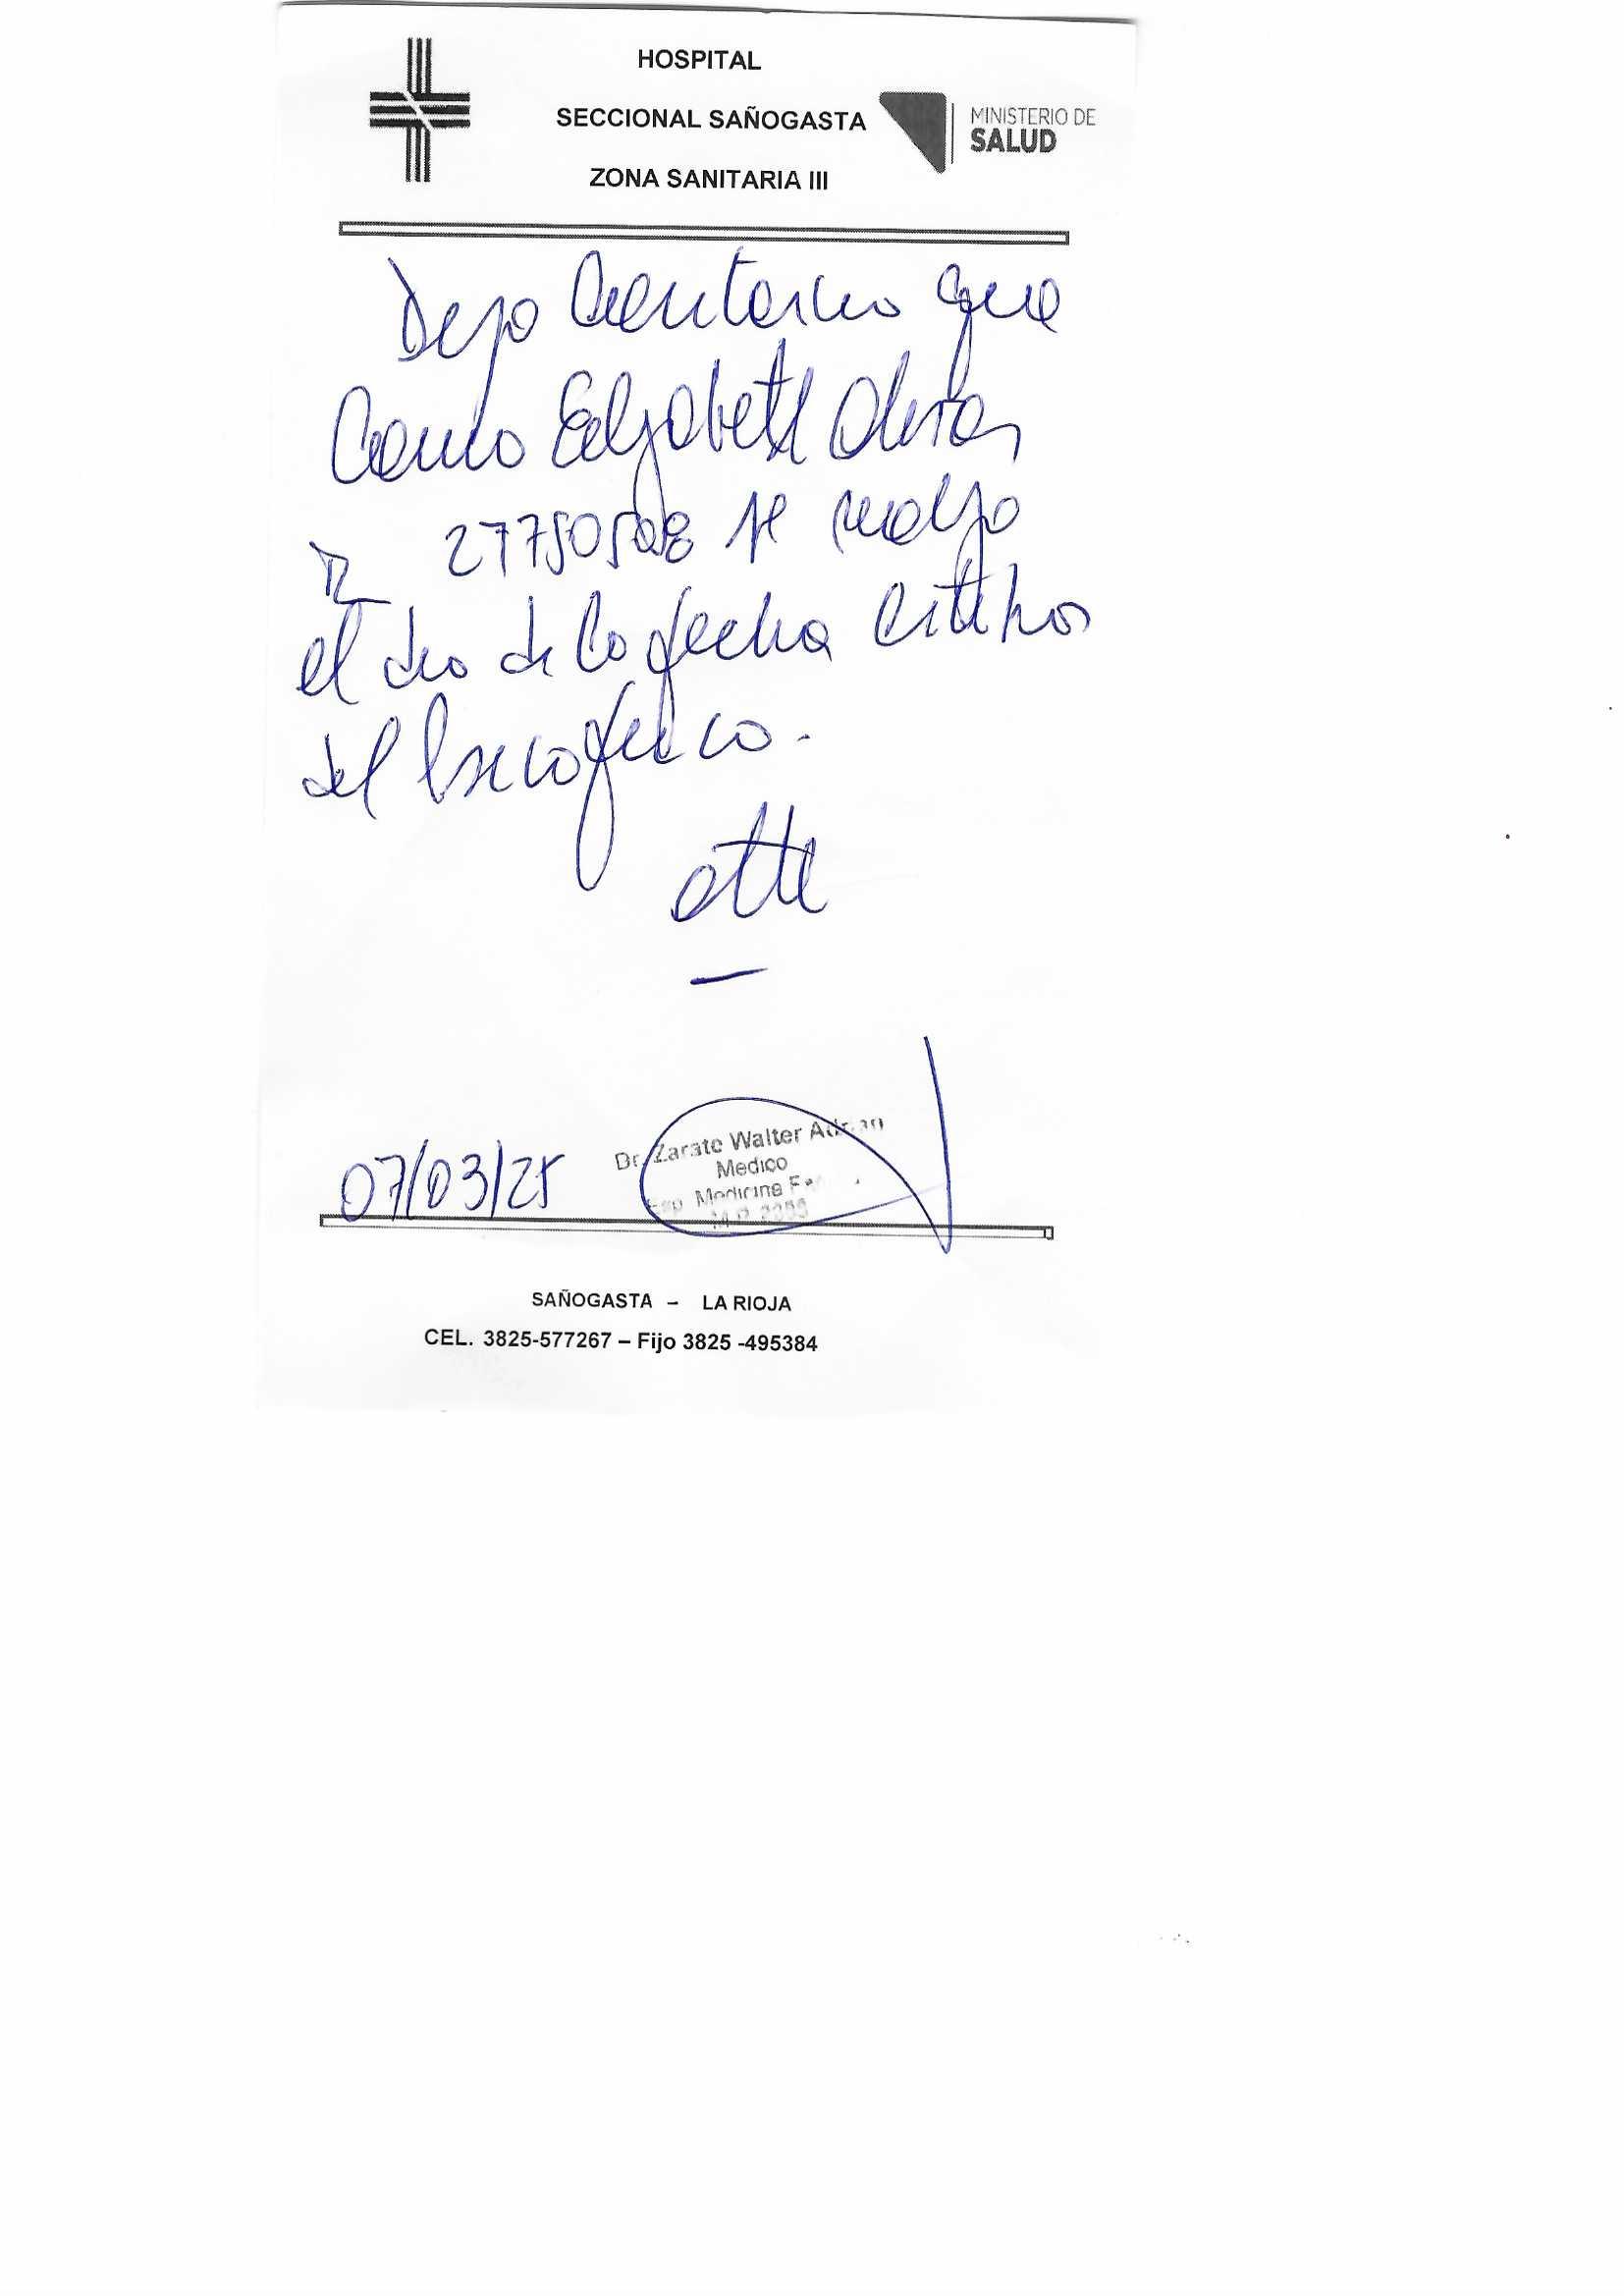 HOSPITAL
SECCIONAL SAÑOGASTA
ZONA SANITARIA III
MINISTERIO DE
SALUD
Dejo constancia que
Elizabeth
27750508 se realizo
el dia de la fecha
del Psicofisico.
atte
07/03/25
Dr. Zarate Walter Adrian
Medico
Esp. Medicina
SAÑOGASTA – LA RIOJA
CEL. 3825-577267 – Fijo 3825 -495384